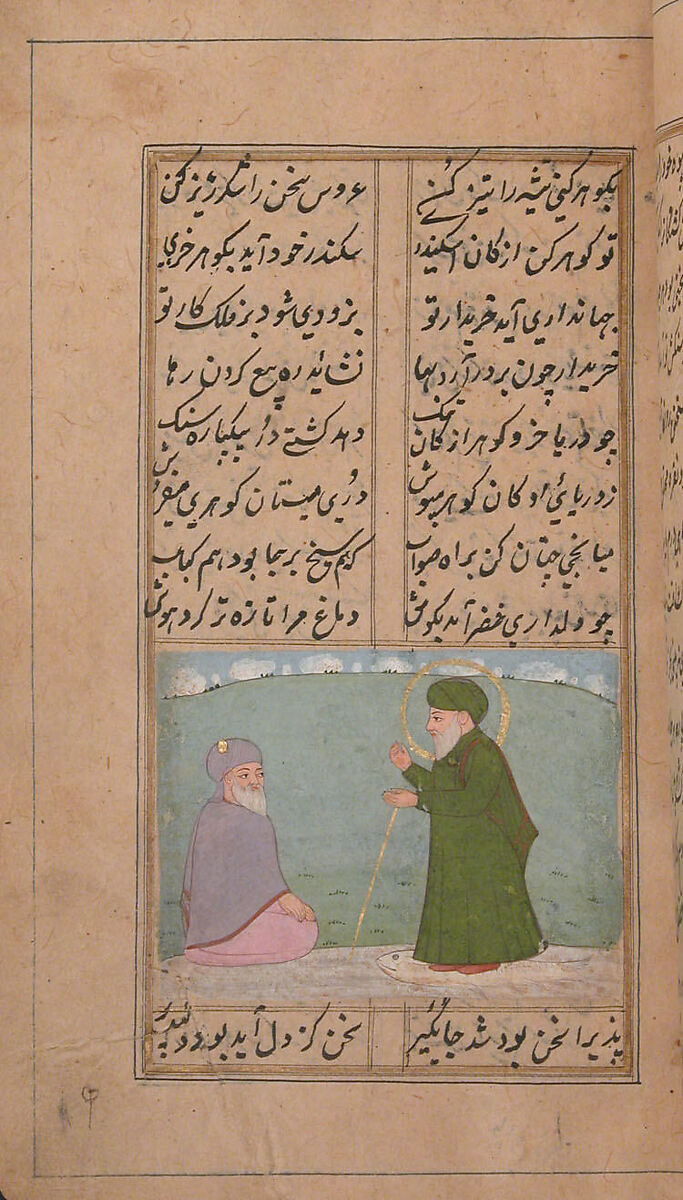 بگوهر کنی تیشه را تیز کنے عروس سخن را شکرریز کن
تو گوهر کن از کان اسکندر سکندر خود آید بگوهر خری
جهانداری آید خریدار تو بزودی شود بر فلک کار تو
خریدار چون بر در آرد بها نشائید ره بیع کردن رها
چو دریا خرد گوهر از کان تنگ دهد کشتے در بیکپاره سنگ
ز دریائی او کان گوهر مپوش دری میستان گوهری میفروش
میانجی چنان کن براه صواب که هم سیخ برجا بود هم کباب
چو دلداری خضر آمد بگوش دماغ مرا تازه تر کرد هوش
پذیرا سخن بود شد جایگیر سخن کز دل آید بود دلپذیر